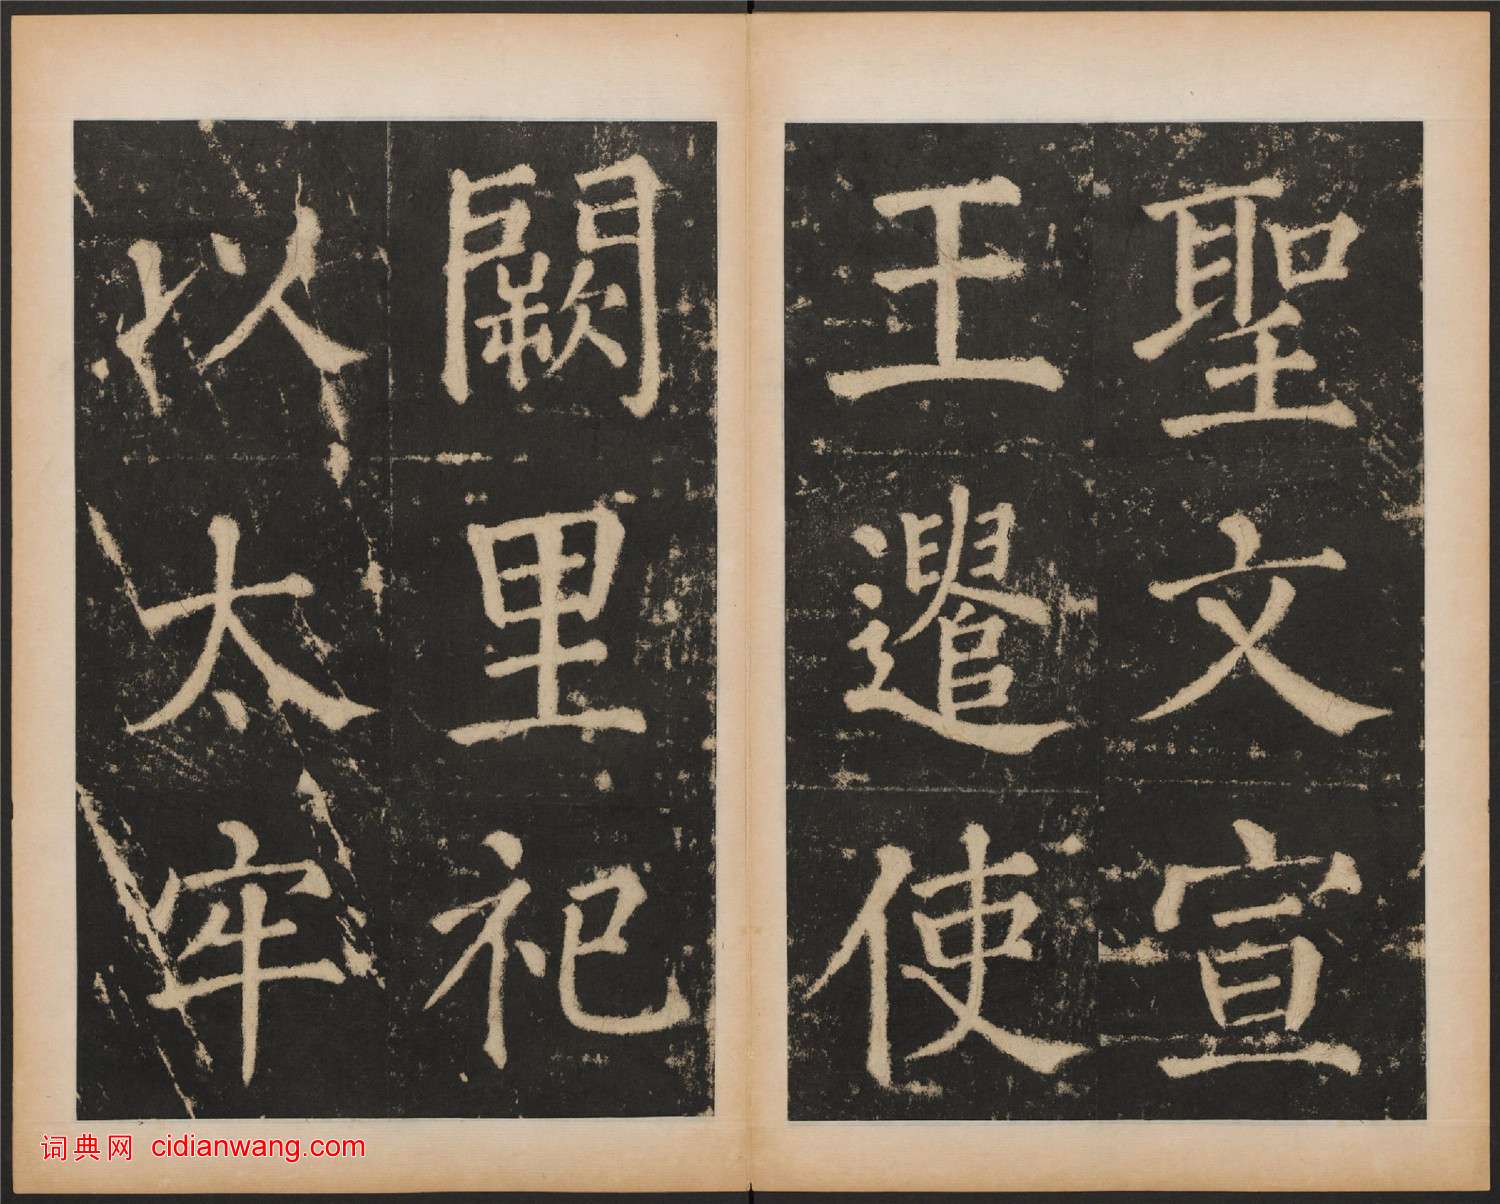 聖文宣
王遣使
闕里祀
以太牢
词典网 cidianwang.com